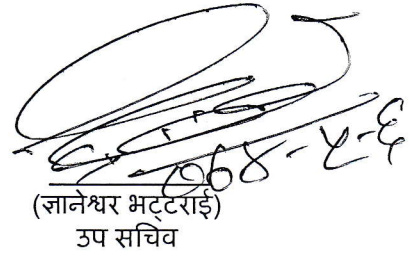 ०७४-५-६
(ज्ञानेश्वर भट्टराई)
उप सचिव